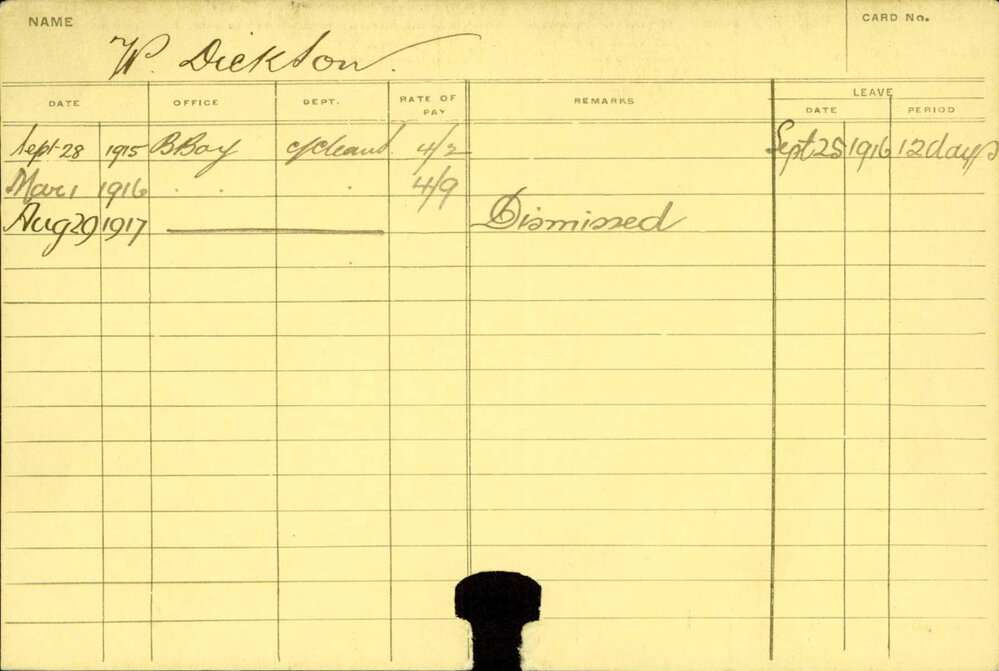 NAME
CARD No.
W. Dickson.
DATE OFFICE DEPT. RATE OF PAY REMARKS LEAVE
DATE PERIOD
Sept 28 1915 B Boy c/cleaner 4/2 Sept 25 1916 12 days
Mar 1 1916 . . . 4/9
Aug 29 1917 Dismissed